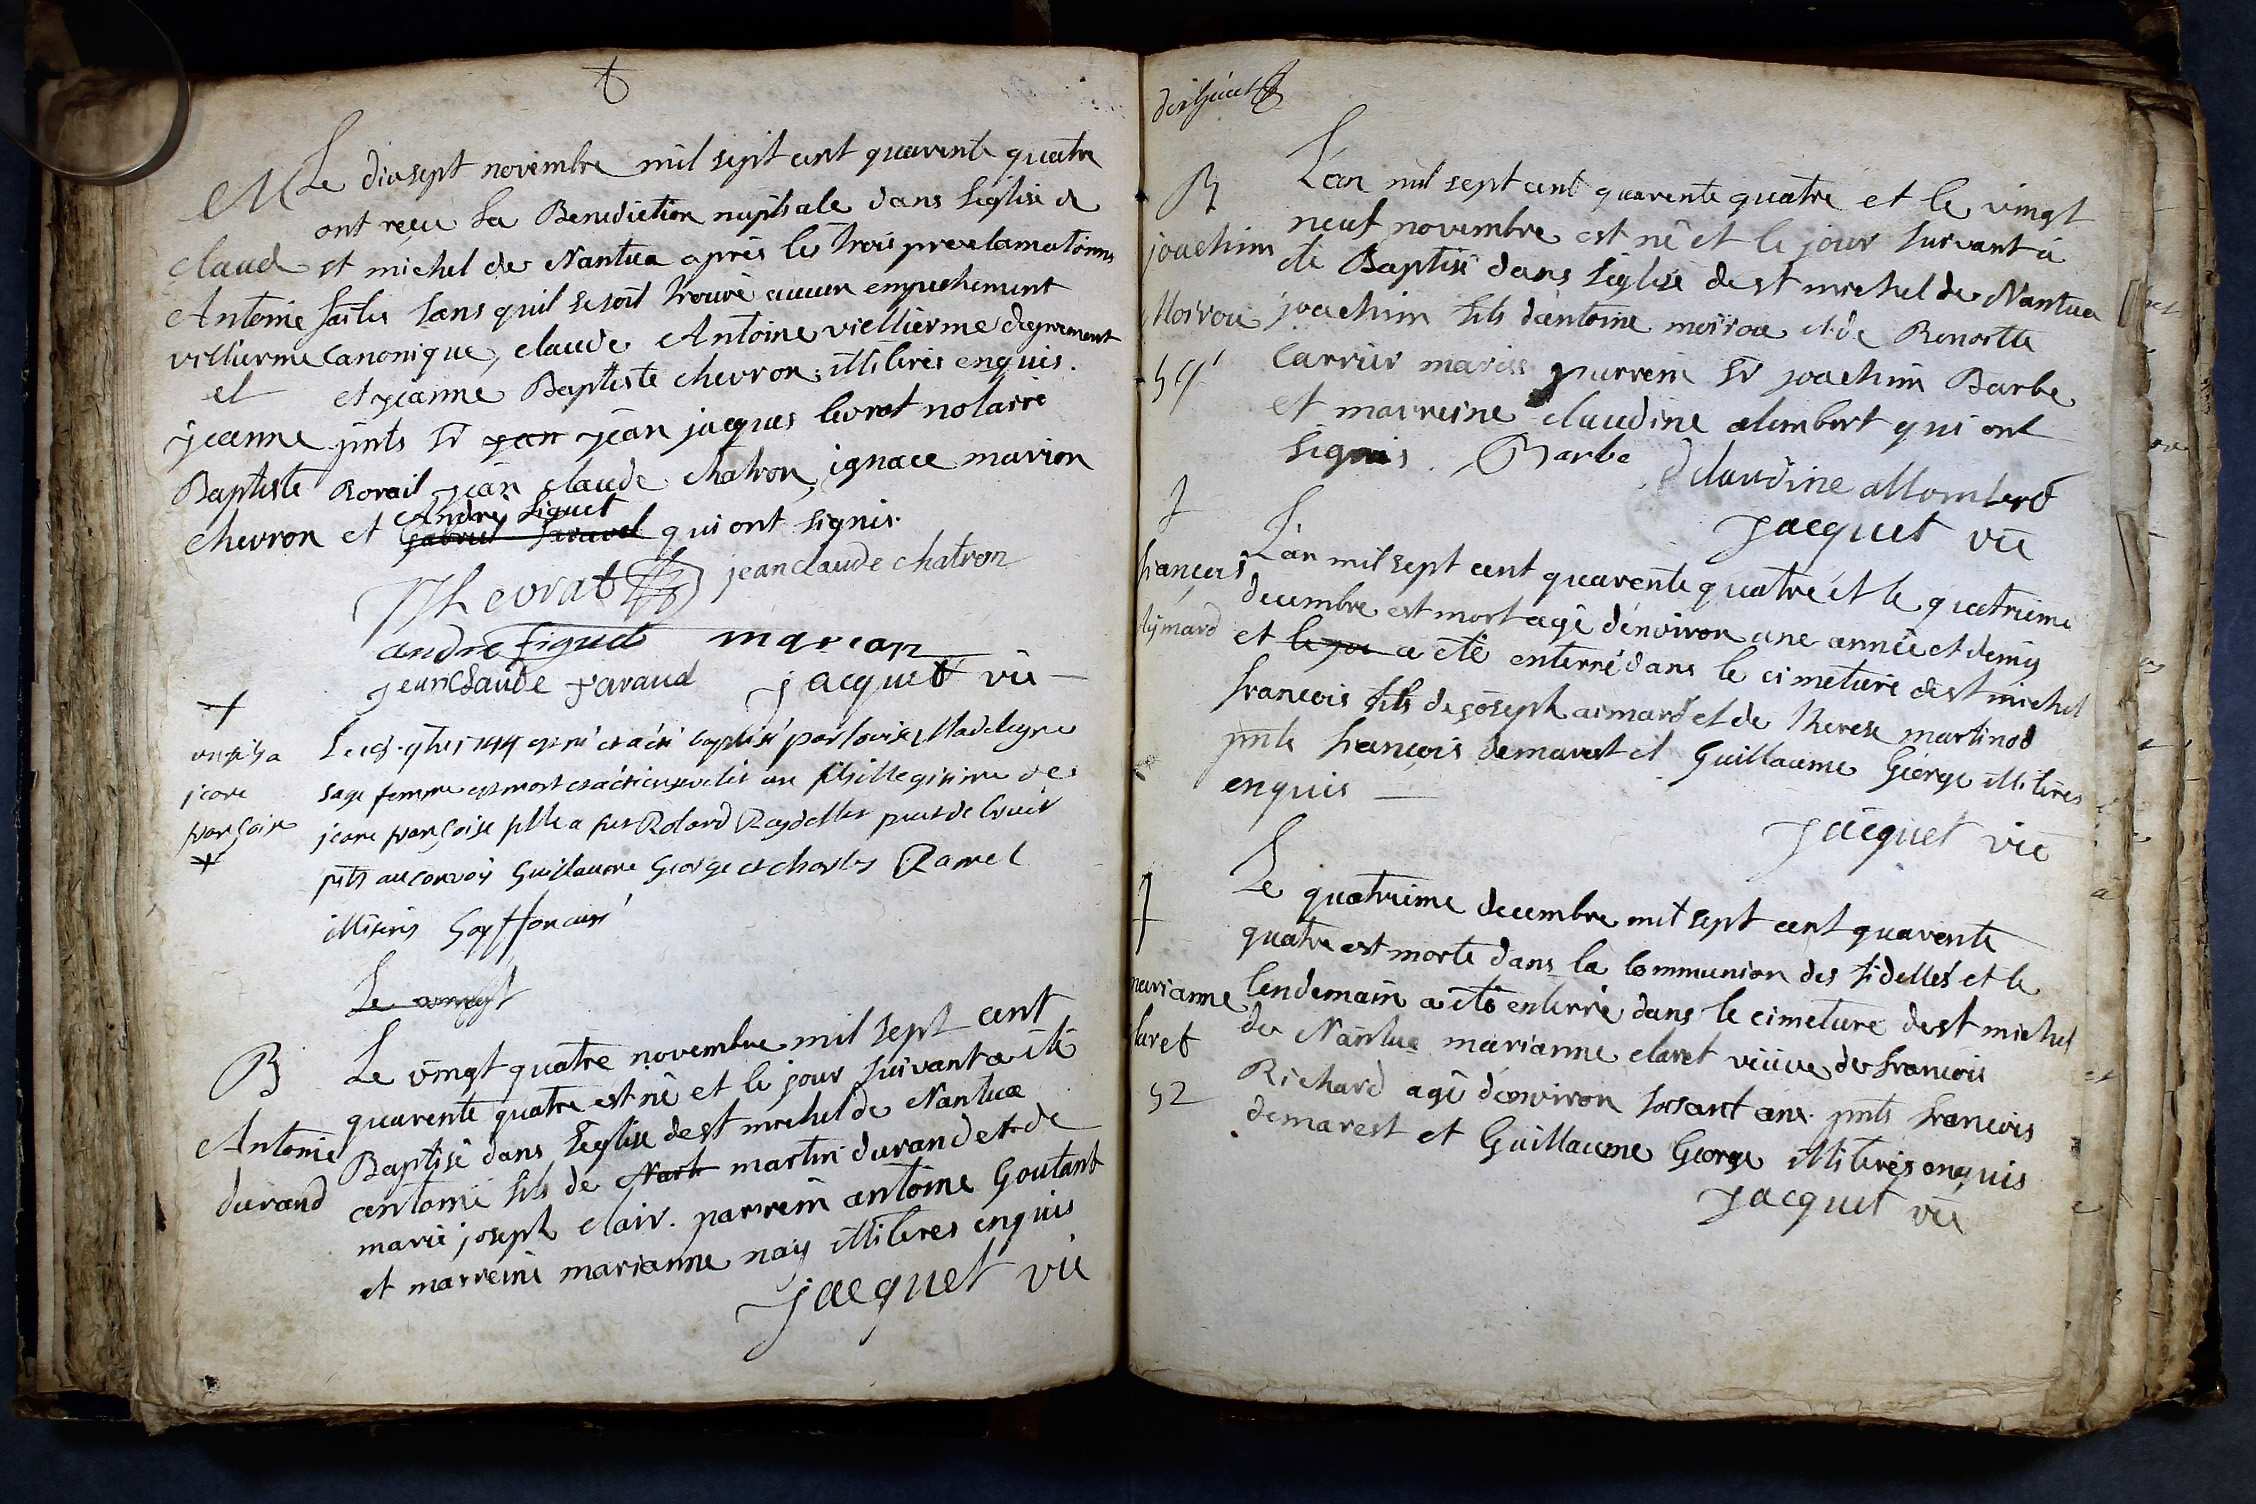 M
Le dix sept novembre mil sept cent quarente quatre
ont reçu La Benediction nuptiale dans L'eglise de
claud st michel de Nantua après les trois proclamations
Antoine faites sans quil se soit trouvé aucun empechement
villierme Canonique, claude Antoine viellierme dagnement
et et jeanne Baptiste chevron illiterés enquis.
jeanne pnts Sr jean jean jacques levrat notaire
Baptiste Roÿail jean claude chatron, ignace marion
André Siguet
chevron et Gabriel qui ont signés.
Levrat jean claude chatron
andre figuet marion
jean Claude ravaud jacquet vic
un fils a
jeane
françoise
Le 9bre 1744 est né et a été baptisé par Louise Madelegne
sage femme est mort et a été enseveli un fils illegitime de
jeane françoise fille a feu Rolard Reydellet
pnts au convoy Guillaume George et charles Ramel
illiterés Goyffon curé
Le vingt
B
Antoine
durand
Le vingt quatre novembre mil sept cent
quarente quatre est né et le jour suivant a été
Baptisé dans L'eglise de st michel de Nantua
antoine fils de Mart martin durand et de
marie joseph clair. parrein antoine Goutant
et marreine marianne nay illiteres enquis
jacquet vic
dix huict
B
joachim
Moirou
51
L'an mil sept cent quarente quatre et le vingt
neuf novembre est né et le jour suivant a
été Baptisé dans L'eglise de st michel de Nantua
joachim fils d'antoine moirou et de Benoitte
Carrier mariés parrein Sr joachim Barbe
et marreine claudine alombert qui ont
signés. Barbe Claudine allomberd
jacquet vic
françois
Aymard
L'an mil sept cent quarente quatre et le quatrieme
decembre est mort agé d'environ une année et demy
et le jou a été enterré dans le cimetiere de st michel
francois fils de joseph aimard et de therese martinod
pnts françois demarest et Guillaume George illiteres
enquis
jacquet vic
marianne
claret
52
Le quatrieme decembre mil sept cent quarente
quatre est morte dans la communion des fidelles et le
lendemain a été enterré dans le cimetiere de st michel
de Nantua marianne claret veuve de francois
Richard agé d'environ soisant ans pnts francois
demarest et Guillaume George illiterés enquis
jacquet vic